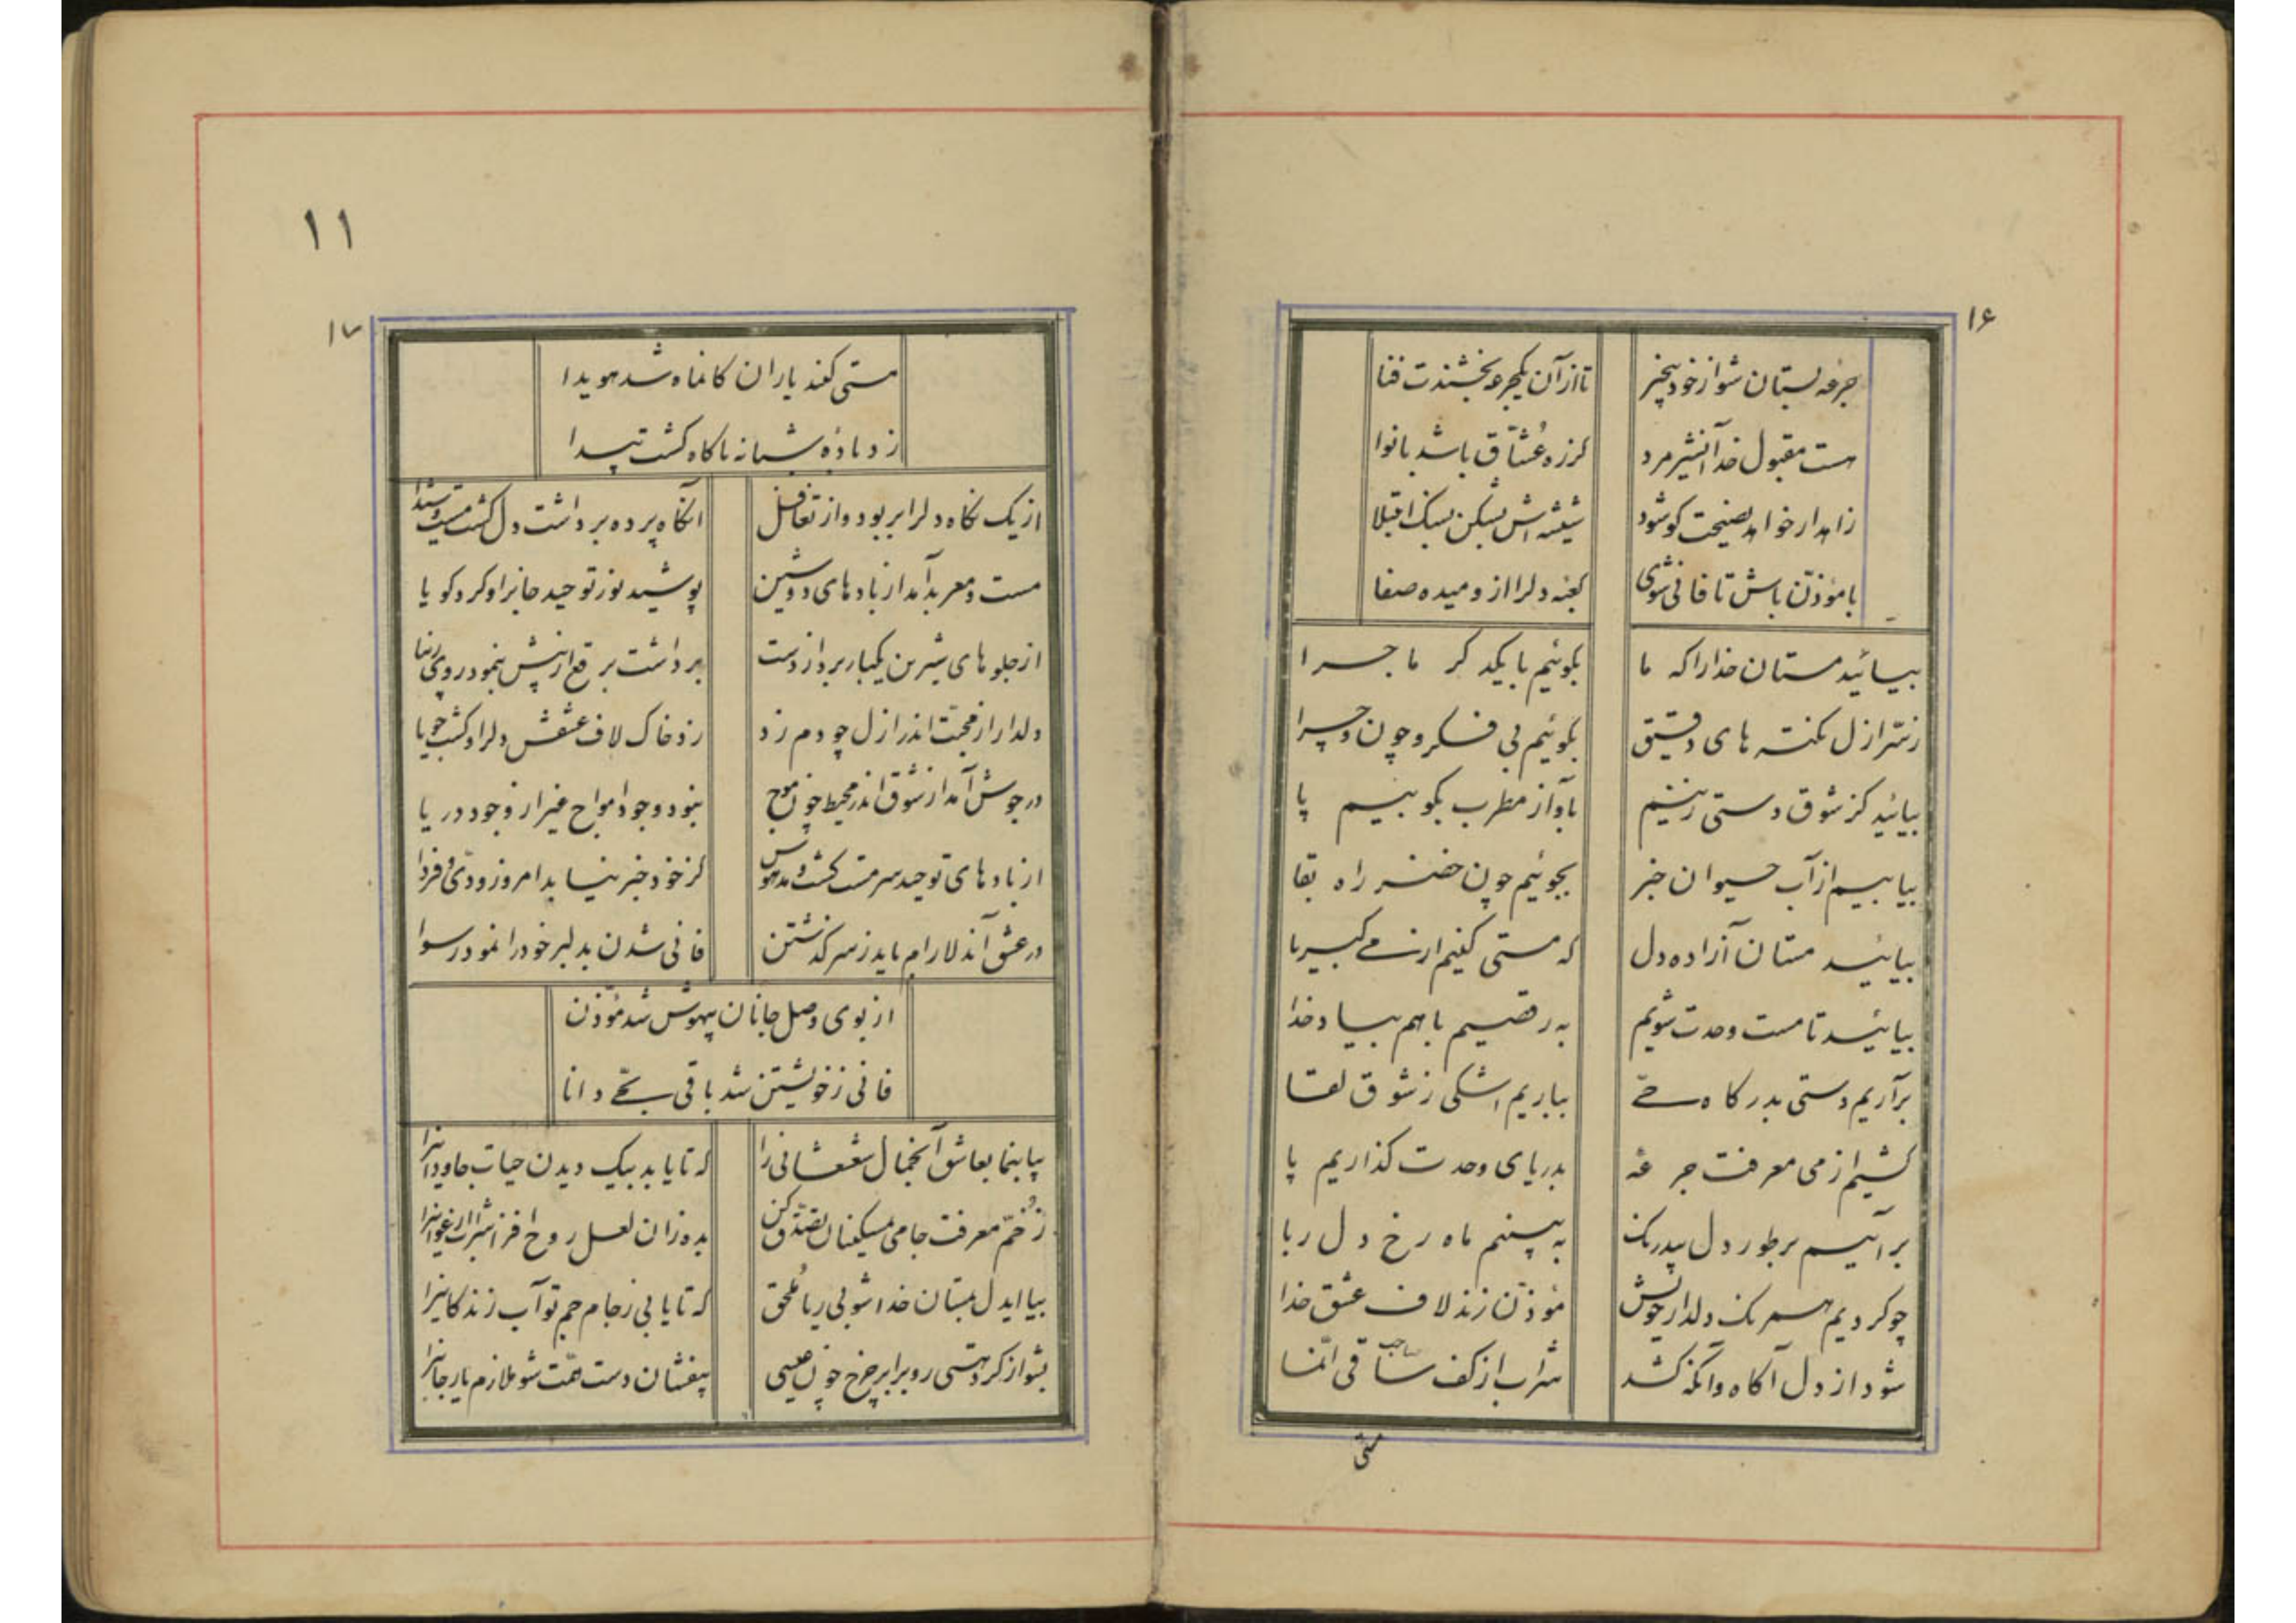 ۱۶
جرعه بستان شو از خود بیخبر تا از آن یکجرعه بخشندت فنا
هست مقبول خدا آنشیر مرد کز ره عُشّاق باشد بانوا
زاهدار خواهد نصیحت گو شود شیشه‌اش بشکن بسنگ ابتلا
با مؤذّن باش تا فانی شوی کعبه دلرا از و میده صفا
بیائید مستان خدا را که ما بگوئیم با یکدگر ماجرا
ز سّر ازل نکته های دقیق بگوئیم بی فکر و چون و چرا
بیائید کز شوق دستی زنیم بآواز مطرب بکوبیم پا
بیابیم از آب حیوان خبر بجوئیم چون خضر راه بقا
بیائید مستان آزاده دل که مستی کنیم از می کبریا
بیائید تا مست وحدت شویم به رقصیم باهم بیاد خدا
برآریم دستی بدرگاه حیّ بباریم اشکی ز شوق لقا
کشیم از می معرفت جرعهٔ بدریای وحدت گذاریم پا
بر آئیم بر طور دل بیدرنگ به بینیم ماه رخ دل ربا
چو کردیم همرنگ دلدار خویش مؤذّن زند لاف عشق خدا
شود از دل آگاه وانگه کشد شراب از کف ساقی انّما
صاحب
مستی
۱۱
۱۷
مستی کنند یاران کانماه شد هویدا
زد بادهٔ شبانه ناگاه گشت پیدا
از یک نگاه دلرا بربود و از تغافل آنگاه پرده برداشت دل گشت مست و شیدا
مست و معربد آمد از بادهای دوشین پوشید نور توحید جانرا و کرد گویا
از جلوهای شیرین یکبار برد از دست برداشت برقع از پیش بنمود روی زیبا
دلدار از محبّت اندر ازل چو دم زد زد خاک لاف عشقش دلرا و گشت جویا
در جوش آمد از شوق اندر محیط چون موج نبود وجود امواج غیر از وجود دریا
از بادهای توحید سرمست گشت و مدهوش کز خود خبر نیابد امروز و دیّ و فردا
در عشق آندلارام باید ز سر گذشتن فانی شدن بدلبر خود را نمود رسوا
از بوی وصل جانان بیهوش شد مؤذّن
فانی ز خویشتن شد باقی بحّی دانا
بیا بنما بعاشق آنجمال شعشعانی را که تا یابد بیک دیدن حیات جاودانیرا
ز خُمّ معرفت جامی بمسکینان تصّدق کن بده زان لعل روح افزا شراب ارغوانیرا
بیا ایدل بمستان خدا شو بی ریا مُلحق که تا یابی ز جام جم تو آب زندگانیرا
بشو از گرد هستی رو برا بر چرخ چون عیسی بیفشان دست همّت شو ملازم یار جانیرا